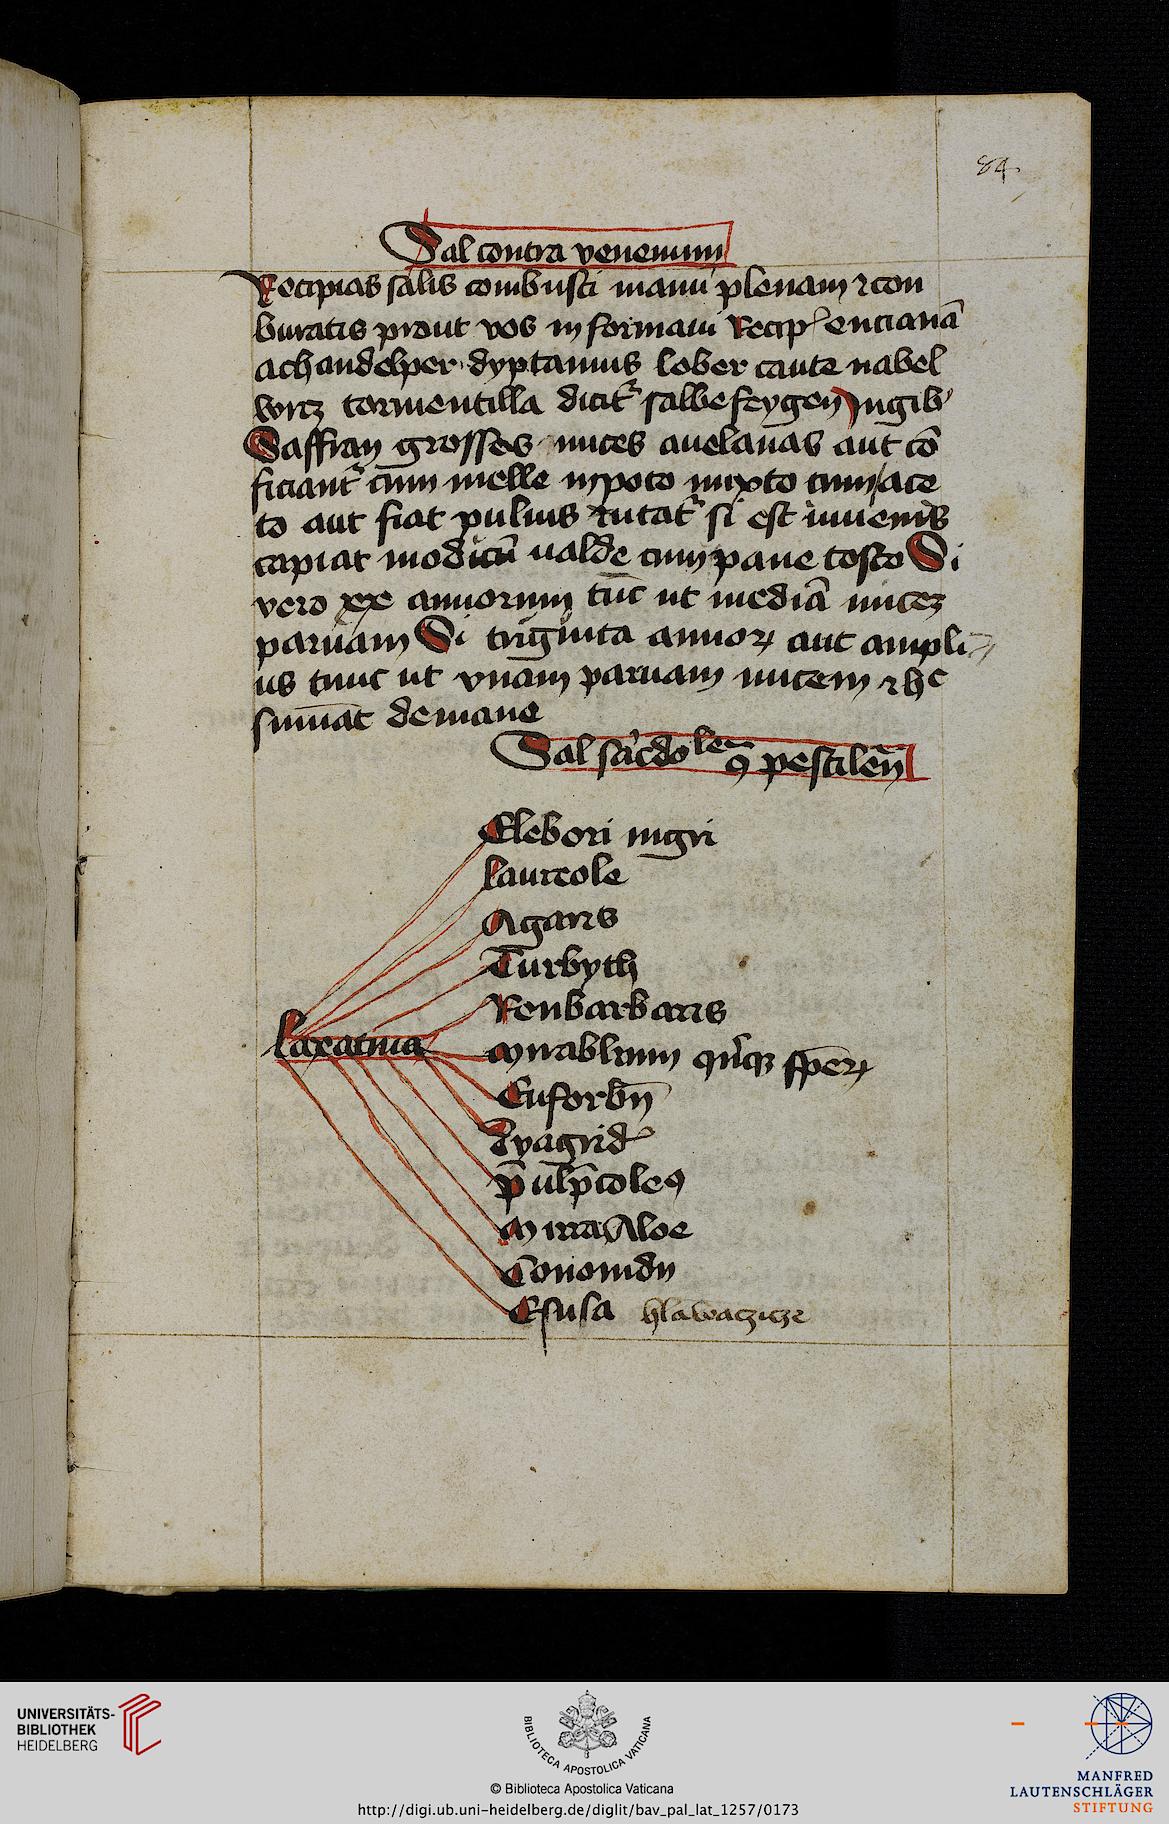 84
Sal contra venenum
Recipias salis combusti manu plenam ⁊ con
buratis prout vos informaui Recip encianā
achandelper dyptamus lober caute nabel
wrcz tormentilla dicit salbe feygen Ingib
Saffran grosses nuces auelanas aut cō
ficiant cum melle in poto mixto cum ace
to aut fiat puluis si est iuuenis
capiat modicū ualde cum pane tosto Si
vero xx annorum tūc ut mediā nucez
paruam Si triginta annoꝝ aut ampli
us tunc ut vnam paruam nucem ⁊ hc
sumat de mane
Sal pestilen
Elebori nigri
laureole
Agaris
Turbyth
laxatiua
Reubarbaris
Mirablrum
Euforbii
dyagrid
Mirra Aloe
Conomdii
Esusa hlawaczicze
UNIVERSITÄTS-
BIBLIOTHEK
HEIDELBERG
BIBLIOTECA APOSTOLICA VATICANA
© Biblioteca Apostolica Vaticana
http://digi.ub.uni-heidelberg.de/diglit/bav_pal_lat_1257/0173
MANFRED
LAUTENSCHLÄGER
STIFTUNG